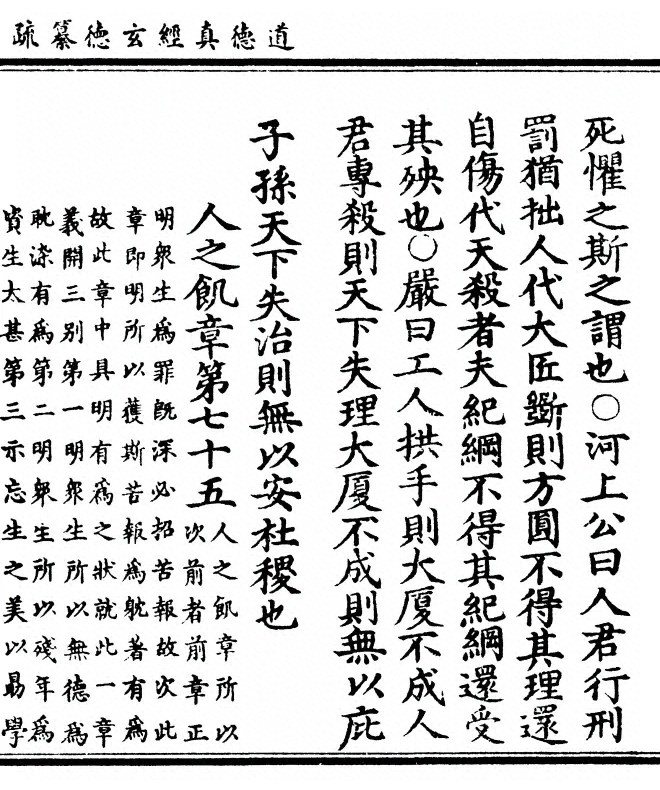 道德真經玄德纂疏
死懼之斯之謂也○河上公曰人君行刑
罰猶拙人代大匠斵則方圓不得其理還
自傷代天殺者夫紀綱不得其紀綱還受
其殃也○嚴曰工人拱手則大厦不成人
君專殺則天下失理大厦不成則無以庇
子孫天下失治則無以安杜稷也
人之飢章第七十五
人之飢章所以
次前者前章正
明衆生為罪既深必招苦報故次此
章即明所以獲斯苦報為躭著有為
故此章中具明有為之狀就此一章
義開三别第一明衆生所以無德為
耽染有為第二明衆生所以殘年為
資生太甚第三示忘生之美以勗學